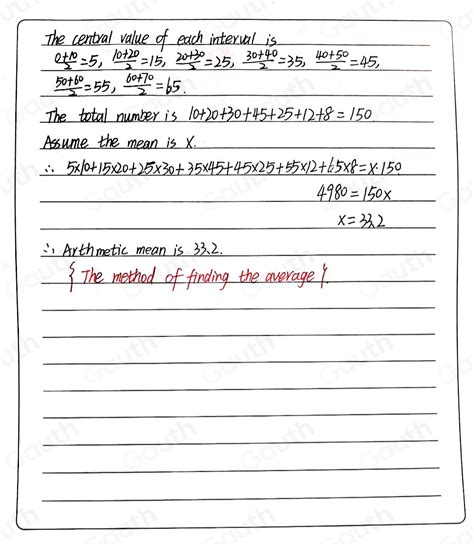 The central value of each interval is
0+10/2=5, 10+20/2=15, 20+30/2=25, 30+40/2=35, 40+50/2=45,
50+60/2=55, 60+70/2=65.
The total number is 10+20+30+45+25+12+8=150
Assume the mean is X.
∴ 5x10+15x20+25x30+35x45+45x25+55x12+65x8=x·150
4980=150x
x=33.2
∴ Arthmetic mean is 33.2.
{ The method of finding the average }.
Gauth